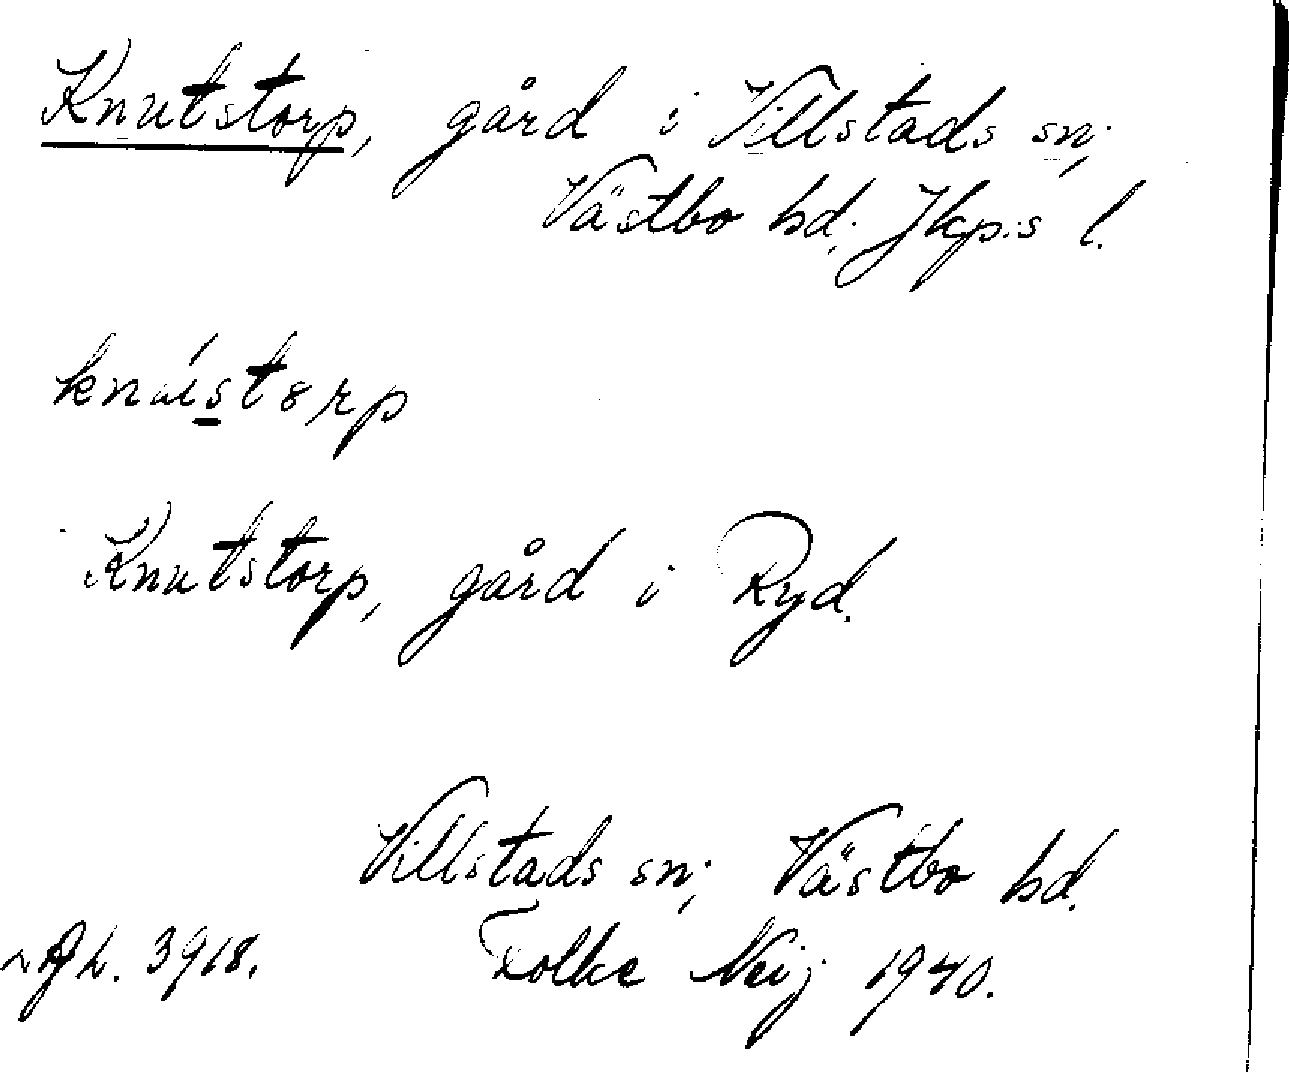 Knutstorp, gård i Villstads sn;
Västbo hd; Jkp:s l.
Knutstorp, gård i Ryd.
Villstads sn; Västbo hd.
3918. Folke Neij 1940.